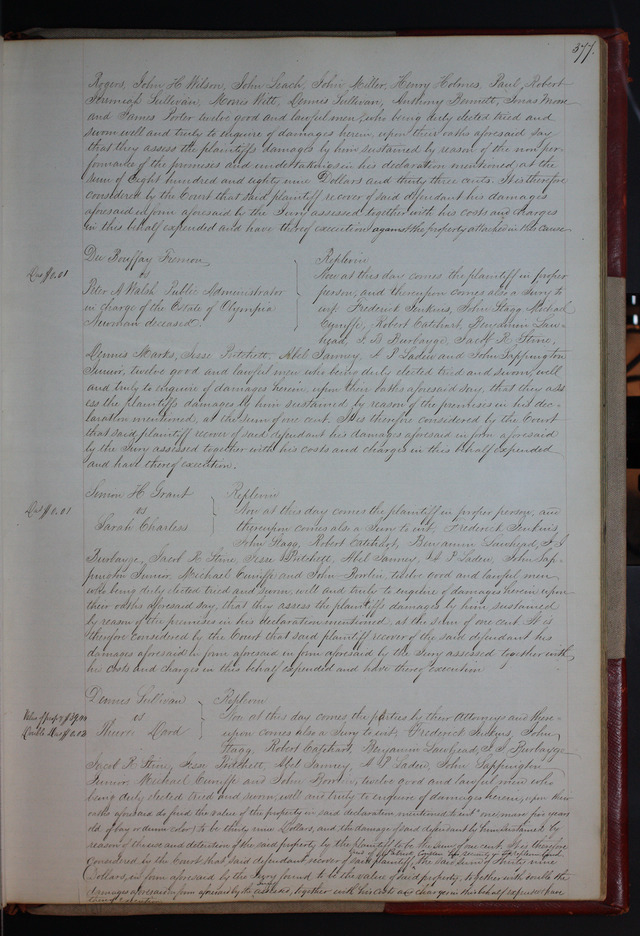 377.
Rogers, John H Wilson, John Leach, John Miller, Henry Holmes, Paul, Robert
Sullivan, Morris Witt, Dennis Sullivan, Anthony Bennett, Jonas
and James Porter twelve good and lawful men, who being duly elected tried and
sworn well and truly to enquire of damages herein, upon their oaths aforesaid say
that they assess the plaintiffs damages by him sustained by reason of the non per-
formance of the promises and undertakings in his declaration mentioned, at the
sum of Eight hundred and eighty nine Dollars and thirty three cents. It is therefore
considered by the Court that said plaintiff recover of said defendant his damages
aforesaid in form aforesaid by the Jury assessed, together with his costs and charges
in this behalf expended and have thereof execution against the property attached in this cause
Du Bouffay Fremon
vs
Peter A Walsh Public Administrator
in charge of the Estate of Olympia
Newman deceased.
$0.01
Replevin
Now at this day comes the plaintiff in proper
person, and thereupon comes also a Jury to
wit, Frederick Jenkins, John Stagg, Michael
Cuniffe, Robert Catchart, Benjamin Law-
head, J. B Burbayge, Jacob R Stine,
Dennis Marks, Jesse Pritchett, Abel Janney, A P Ladew and John Sappington
Junior, twelve good and lawful men who being duly elected tried and sworn, well
and truly to enquire of damages herein, upon their oaths aforesaid say, that they ass
ess the plaintiffs damages by him sustained by reason of the premises in his dec-
laration mentioned, at the sum of one cent. It is therefore considered by the Court
that said plaintiff recover of said defendant his damages aforesaid in form aforesaid
by the Jury assessed together with his costs and charges in this behalf expended
and have thereof execution.
Simon H Grant
vs
Sarah Charless
$0.01
Replevin
Now at this day comes the plaintiff in proper person, and
thereupon comes also a Jury to wit. Frederick Jenkins,
John Stagg, Robert Catchart, Benjamin Lawhead, J. B
Burbayge, Jacob R Stine, Jesse Pritchett, Abel Janney, A P Ladew, John Sap-
pington Junior, Michael Cuniffe and John Bowlin, twelve good and lawful men
who being duly elected tried and sworn, well and truly to enquire of damages herein upon
their oaths aforesaid say, that they assess the plaintiffs damages by him sustained
by reason of the premises in his declaration mentioned, at the sum of one cent. It is
therefore considered by the Court that said plaintiff recover of the said defendant his
damages aforesaid in form aforesaid in form aforesaid by the Jury assessed together with
his costs and charges in this behalf expended and have thereof execution
Dennis Sullivan
vs
Value of $39.00
Double $0.02
Replevin
Now at this day comes the parties by their Attorneys and there-
upon comes also a Jury to wit, Frederick Jenkins, John
Stagg, Robert Catchart, Benjamin Lawhead, J. B Burbayge
Jacob R Stine, Jesse Pritchett, Abel Janney, A P Ladew, John Sappington
Junior, Michael Cuniffe and John Bowlin, twelve good and lawful men who
being duly elected tried and sworn, well and truly to enquire of damages herein, upon their
oaths aforesaid do find the value of the property in said declaration mentioned, to wit "one mare five years
old of bay or color" to be thirty nine Dollars, and the damage of said defendant by him sustained by
reason of the and detention of the said property by the plaintiff to be the sum of one cent. It is therefore
considered by the Court that said defendant recover of said plaintiff, the said sum of thirty nine
Dollars, in form aforesaid by the Jury found to be the value of said property, together with double the
damages aforesaid in form aforesaid by the Jury assessed, together with his costs and charges in this behalf expended and have
thereof execution